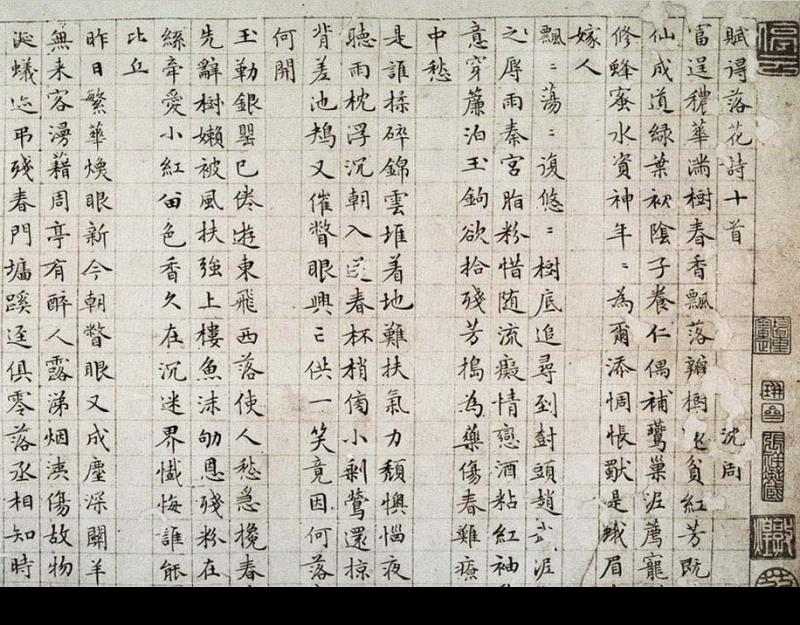 賦得落花詩十首 沈周
富逞穠華滿樹春香飄落瓣樹 貧紅芳既
仙成道綠葉初陰子養仁偶補鶯巢泥薦寵
修蜂蜜水資神年〻為爾添惆悵獸是蛾眉
嫁人
飄〻蕩〻復悠〻樹底追尋到樹頭趙 泥
之辱雨秦宮脂粉惜随流癡情戀酒粘紅袖
意穿簾泊玉鉤欲拾殘芳搗為藥傷春難療
中愁
是誰揉碎錦雲堆着地難扶氣力頹懊惱夜
聽雨枕浮沉朝入送春杯梢傍小剩鶯還掠
背差池鴂又催瞥眼興亡供一笑竟因何落
何開
玉勒銀罌已倦遊東飛西落使人愁急攙春
先辭樹嬾被風扶強上樓魚沫劬恩殘粉在
絲牽愛小紅留色香久在沉迷界懺悔誰能
比丘
昨日繁華煥眼新今朝瞥眼又成塵深關羊
無来容漫藉周亭有醉人露涕烟洟傷故物
涎蟻迹弔殘春門墻蹊逕俱零落丞相知時